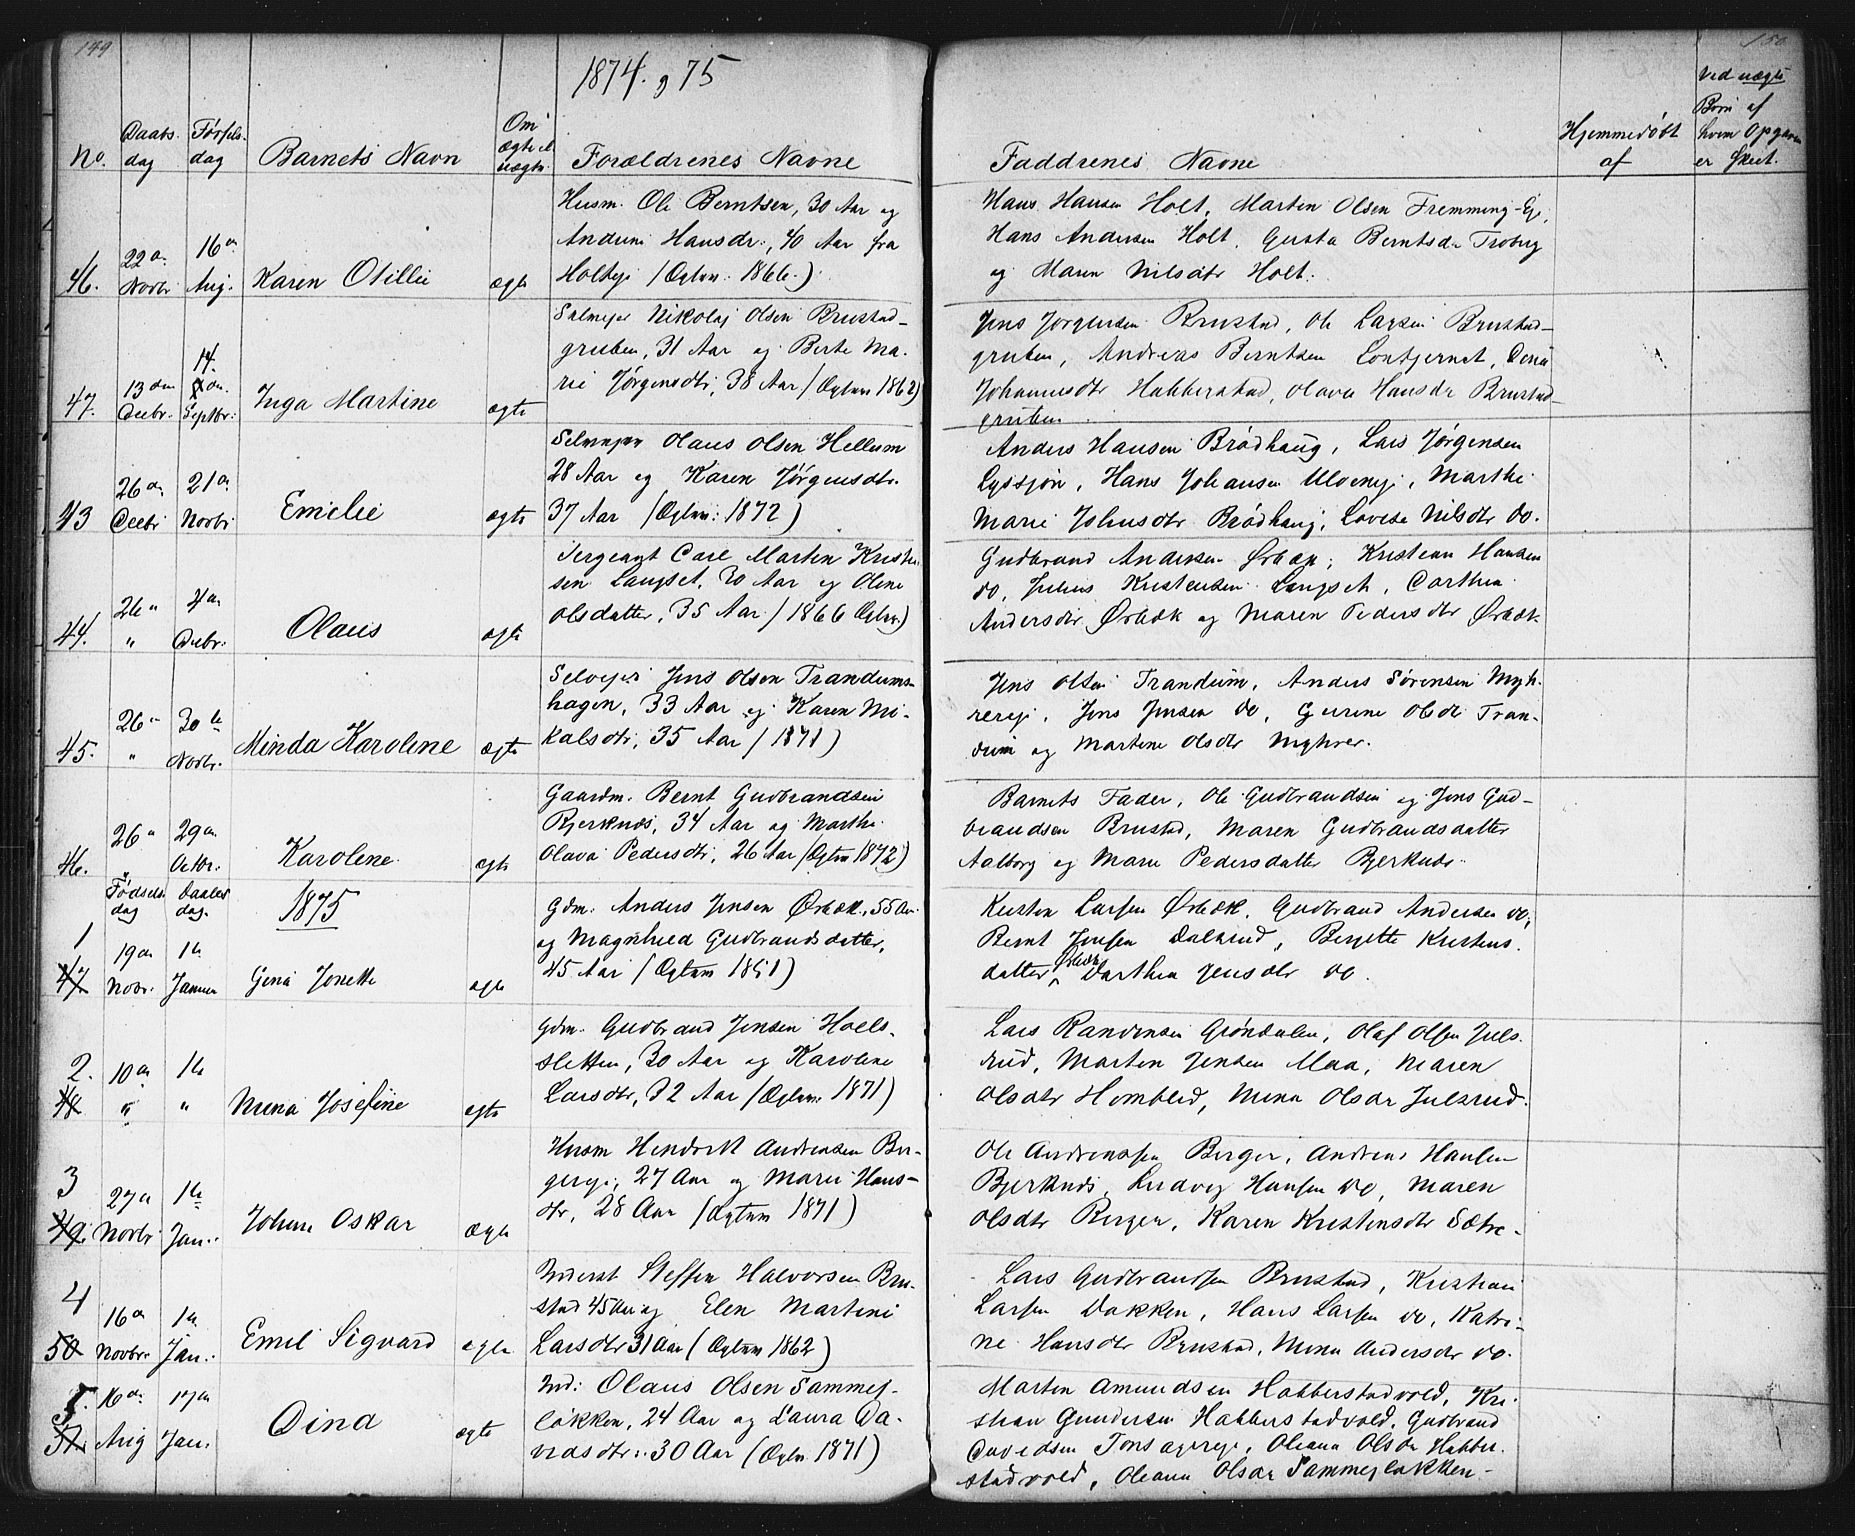 149
150
1874. og 75
No.
Daabs-
dag
Førsels-
dag
Barnets Navn
Om
ægte el.
uægte
Forældrenes Navne
Faddrenes Navne
Hjemmedøbt
af
Ved uægte
Børn af
hvem Opgaven
er skeet.
46.
22de
Novbr
16de
Aug.
Karen Otillie
ægte
Husm. Ole Berntsen, 30 Aar og
Andrine Hansdr., 40 Aar fra
Holteje (Ægtev. 1866.)
Hans Hansen Holt, Marten Olsen Fremming-Eje,
Hans Andersen Holt, Gusta Berntsdr Troberg
og Maren Nilsdtr Holt.
47.
13den
Decbr.
14.
den
Septbr.
Inga Martine
ægte
Selvejer Nikolaj Olsen Brustad-
gruben, 31 Aar og Berte Ma-
rie Jørgensdtr, 38 Aar (Ægtev. 1862)
Jens Jørgensen Brustad, Ole Larsen Brustad-
gruben, Andreas Berntsen Lontjernet, Dina
Johannesdtr Habberstad, Olava Hansdr Brustad-
gruben.
43
26de
Decbr
21de
Novbr
Emilie
ægte
Selvejer Olaus Olsen Hellum
28 Aar og Karen Jørgensdtr.
37 Aar (Ægtev: 1872)
Anders Hansen Brødhaug, Lars Jørgensen
Lyssjøn, Hans Johansen Ulveneje, Marthe
Marie Johnsdtr Brødhaug, Lovise Nilsdtr do.
44.
26 "
"
4de
Decbr.
Olaus
ægte
Sergeant Carl Marten Kristen-
sen Langset, 30 Aar og Oline
Olsdatter, 35 Aar (1866 Ægtev.)
Gudbrand Andersen Ørbæk, Kristian Hansen
do, Julius Kristensen Langset, Dorthea
Andersdtr Ørbæk og Maren Pedersdtr Ørbæk
45.
26 "
"
30te
Novbr.
Minda Karoline
ægte
Selvejer Jens Olsen Trandums-
hagen, 33 Aar og Karen Mi-
kalsdtr, 35 Aar (1871)
Jens Olsen Trandum, Anders Sørensen Myh-
rereje, Jens Jensen do, Gurine Olsdr Tran-
dum og Martine Olsdtr Myhrer.
46.
26 "
"
29de
Oktbr.
Karoline
ægte
Gaardm. Bernt Gudbrandsen
Bjerknæs, 34 Aar og Marthe
Olava Pedersdtr, 26 Aar (Ægtev 1872)
Barnets Fader, Ole Gudbrandsen og Jens Gud-
brandsen Brustad, Maren Gudbrandsdatter
Aalborg og Marie Pedersdatter Bjerknæs.
Fødsels-
dag
Daabs-
dag.
1875
1
47
19de
Novbr.
1te
Januar
Gina Jonette
ægte
Gdm. Anders Jensen Ørbæk, 55 Aar
og Magnhild Gudbrandsdatter,
45 Aar (Ægtev 1851)
Kristen Larsen Ørbæk, Gudbrand Andersen do,
Bernt Jensen Dalsrud, Bergitte Kristens-
datter Ørbæk, Dorthea Jensdtr do.
2.
48
10de
"
1te
"
Mina Josefine
ægte
Gdm. Gudbrand Jensen Hoels-
sletten, 30 Aar og Karoline
Larsdtr, 32 Aar (Ægtev. 1871)
Lars Randensen Grøndalen, Olaf Olsen Juls-
rud, Marten Jensen Maa, Maren
Olsdtr Hombled, Mina Olsdr Julsrud.
3
49
27de
Novbr
1te
Jan.
Johan Oskar
ægte
Husm Hendrik Andreasen Ber-
gereje, 27 Aar og Marie Hans-
dtr, 28 Aar (Ægtev 1871)
Ole Andreassen Berger, Andreas Hansen
Bjerknæs, Ludvig Hansen do, Maren
Olsdtr Berger, Karen Kristensdtr Sætre.
4
50
16de
Novbr.
1te
Jan.
Emil Sigvard
ægte
Inderst Steffen Halvorsen Bru-
stad 45 Aar og Elen Martine
Larsdtr 31 Aar (Ægtev 1862)
Lars Gudbrandsen Brustad, Kristian
Larsen Dokken, Hans Larsen do, Katri-
ne Hansdtr Brustad, Mina Andersdtr do.
5.
51.
16de
Aug
17de
Jan.
Dina
ægte
Ind: Olaus Olsen Sammej-
løkken, 24 Aar og Laura Da-
vidsdtr: 30 Aar (Ægtev 1871)
Marten Amundsen Habberstadvold, Kri-
stian Gundersen Habberstadvold, Gudbrand
Davidsen Tonsagereje, Oliana Olsdr Habber-
stadvold, Oleana Olsdr Sammejløkken.